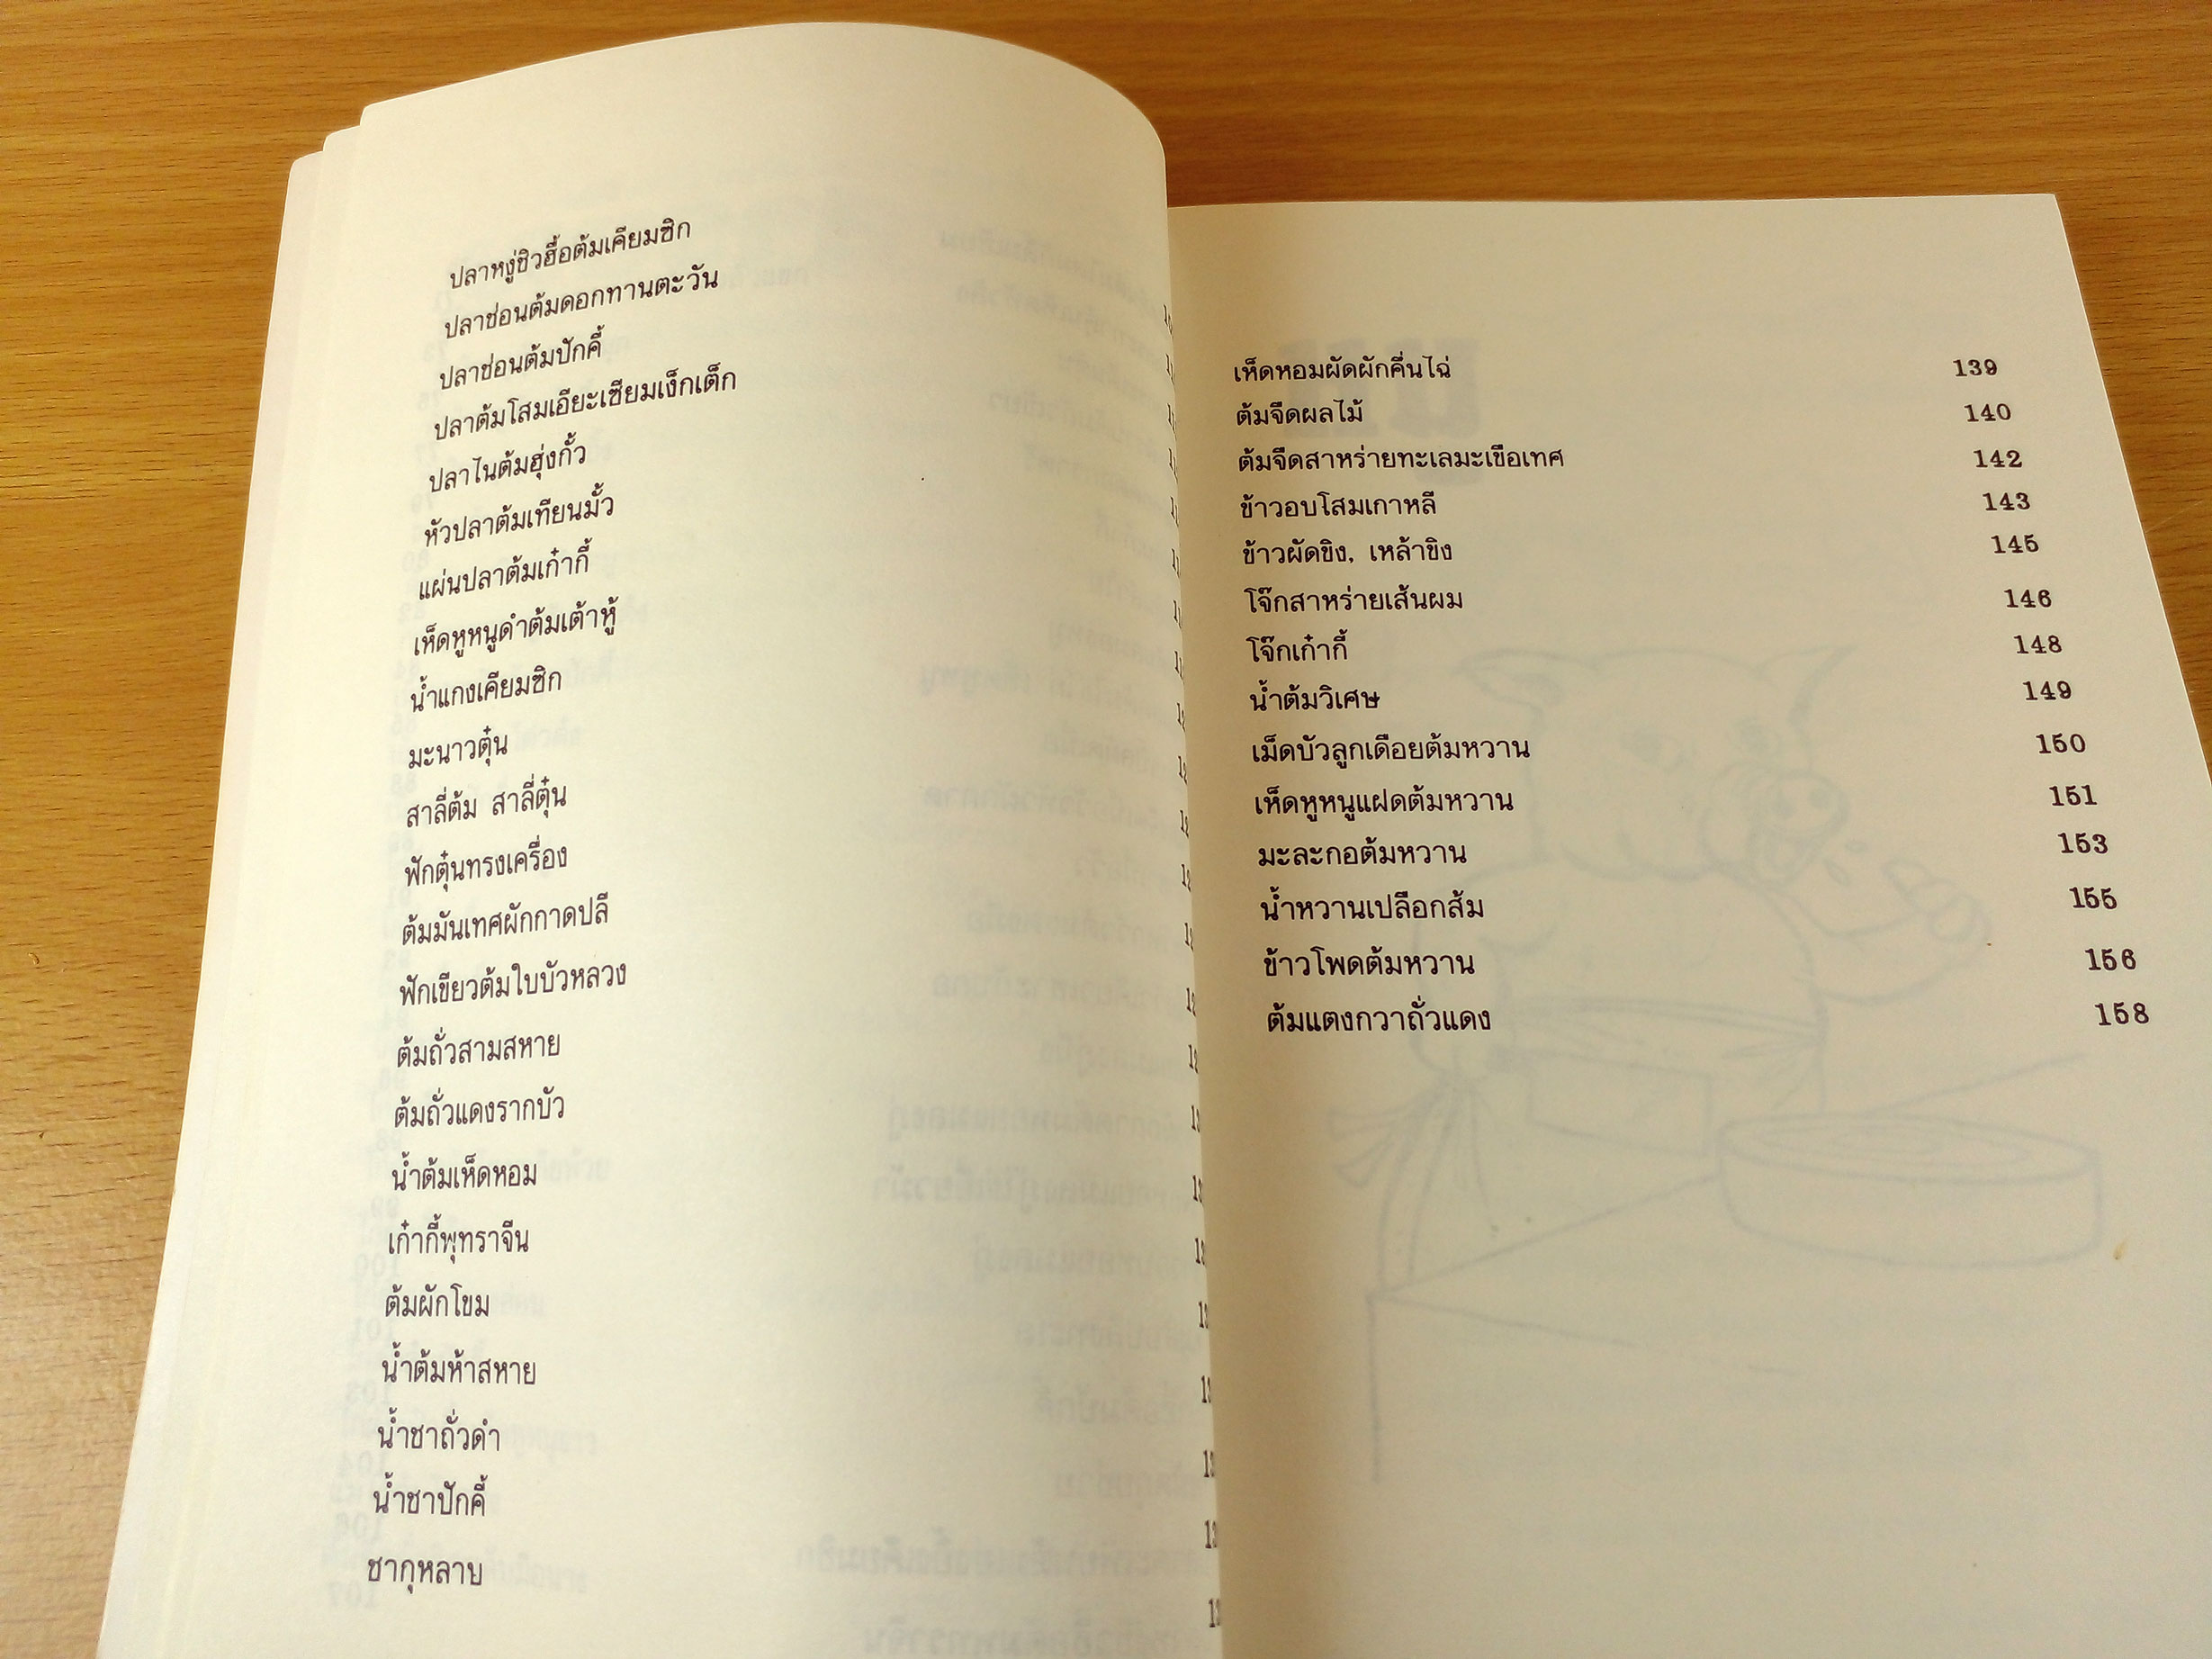 ปลาหงู่ชิวฮื้อต้มเคียมซิก
ปลาช่อนต้มดอกทานตะวัน
ปลาช่อนต้มปักคี้
ปลาต้มโสมเอียะเซียมเง็กเต็ก
ปลาไนต้มฮุ่งกั้ว
หัวปลาต้มเทียนมั้ว
แผ่นปลาต้มเก๋ากี้
เห็ดหูหนูดำต้มเต้าหู้
น้ำแกงเคียมซิก
มะนาวตุ๋น
สาลี่ต้ม สาลี่ตุ๋น
ฟักตุ๋นทรงเครื่อง
ต้มมันเทศผักกาดปลี
ฟักเขียวต้มใบบัวหลวง
ต้มถั่วสามสหาย
ต้มถั่วแดงรากบัว
น้ำต้มเห็ดหอม
เก๋ากี้พุทราจีน
ต้มผักโขม
น้ำต้มห้าสหาย
น้ำชาถั่วดำ
น้ำชาปักคี้
ชากุหลาบ
เห็ดหอมผัดผักคื่นไฉ่ 139
ต้มจืดผลไม้ 140
ต้มจืดสาหร่ายทะเลมะเขือเทศ 142
ข้าวอบโสมเกาหลี 143
ข้าวผัดขิง, เหล้าขิง 145
โจ๊กสาหร่ายเส้นผม 146
โจ๊กเก๋ากี้ 148
น้ำต้มวิเศษ 149
เม็ดบัวลูกเดือยต้มหวาน 150
เห็ดหูหนูแฝดต้มหวาน 151
มะละกอต้มหวาน 153
น้ำหวานเปลือกส้ม 155
ข้าวโพดต้มหวาน 156
ต้มแตงกวาถั่วแดง 158